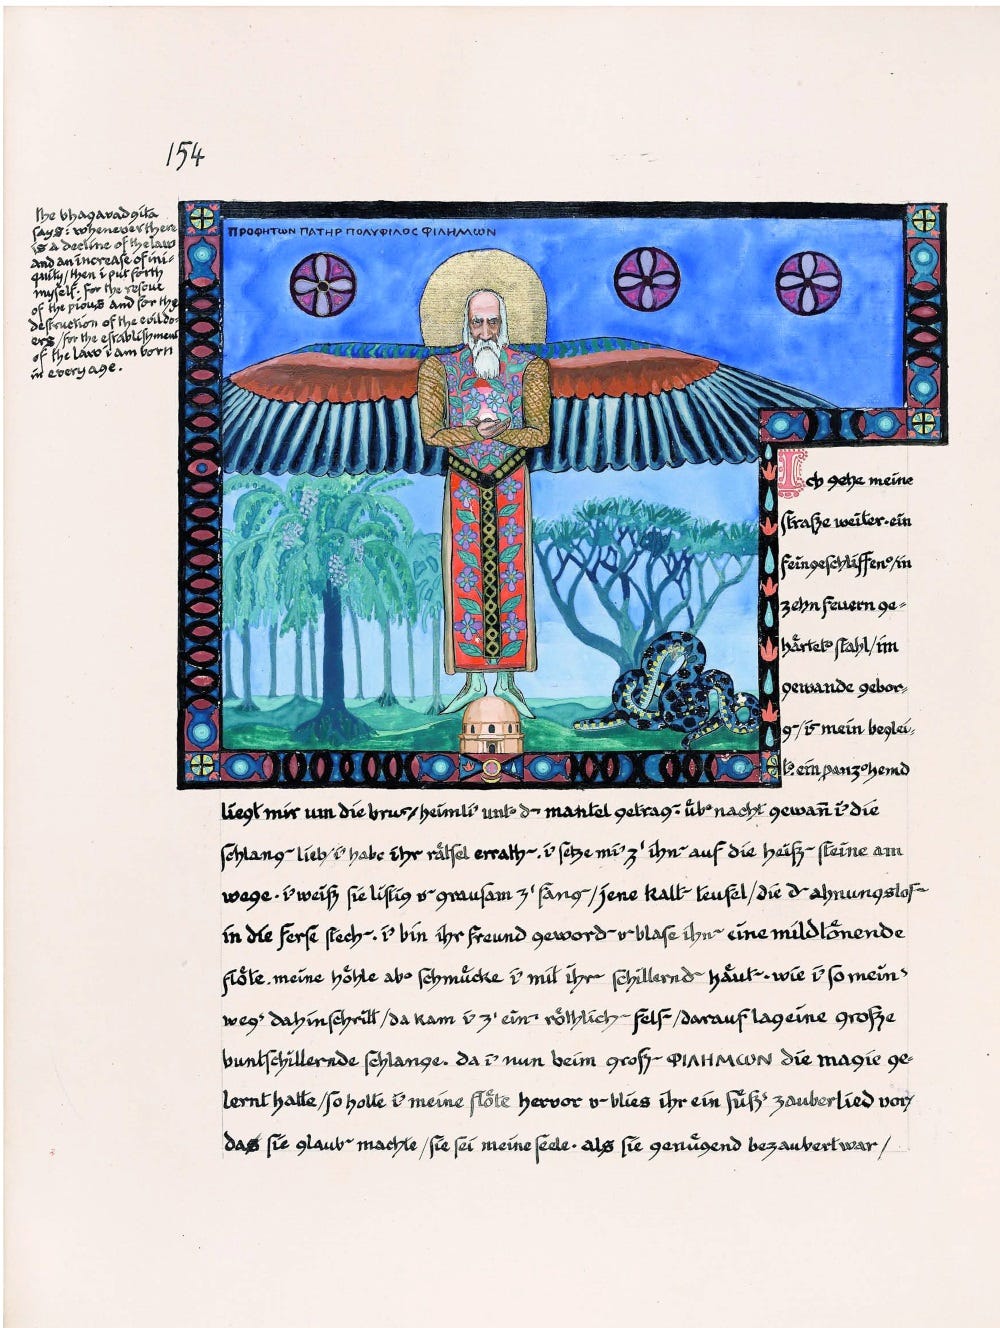 154
the bhagavadgita
says: whenever there
is a decline of the law
and an increase of ini-
quity / then i put forth
myself. for the rescue
of the pious and for the
destruction of the evildo-
ers / for the establishment
of the law i am born
in every age.
ΠΡΟΦΗΤΩΝ ΠΑΤΗΡ ΠΟΛΥΦΙΛΟϹ ΦΙΛΗΜΩΝ
Ich gehe meine
straße weiter. ein
feingeschliffen' / in
zehn feuern ge-
härtet' stahl / im
gewande gebor-
g- / i' mein beglei-
t' ein panz'hemd
liegt mir um die brust / heimli' unt' d- mantel getrag-. üb' nacht gewan̄ i' die
schlang- lieb / i' habe ihr rätsel errath-. i' setze mi' z' ihn- auf die heiß- steine am
wege. i' weiß sie listig u- grausam z' fang- / jene kalt- teufel / die d- ahnungslos-
in die ferse stech-. i' bin ihr freund geword- u- blase ihn- eine mildtönende
flöte. meine höhle ab' schmücke i' mit ihr- schillernd- häut-. wie i' so mein'
weg' dahinschritt / da kam i' z' ein- röthlich- fels / darauf lag eine große
buntschillernde schlange. da i' nun beim groß- ΦΙΛΗΜΩΝ die magie ge-
lernt hatte / so holte i' meine flöte hervor u- blies ihr ein süß' zauberlied vor /
das sie glaub- machte / sie sei meine seele. als sie genügend bezaubert war /